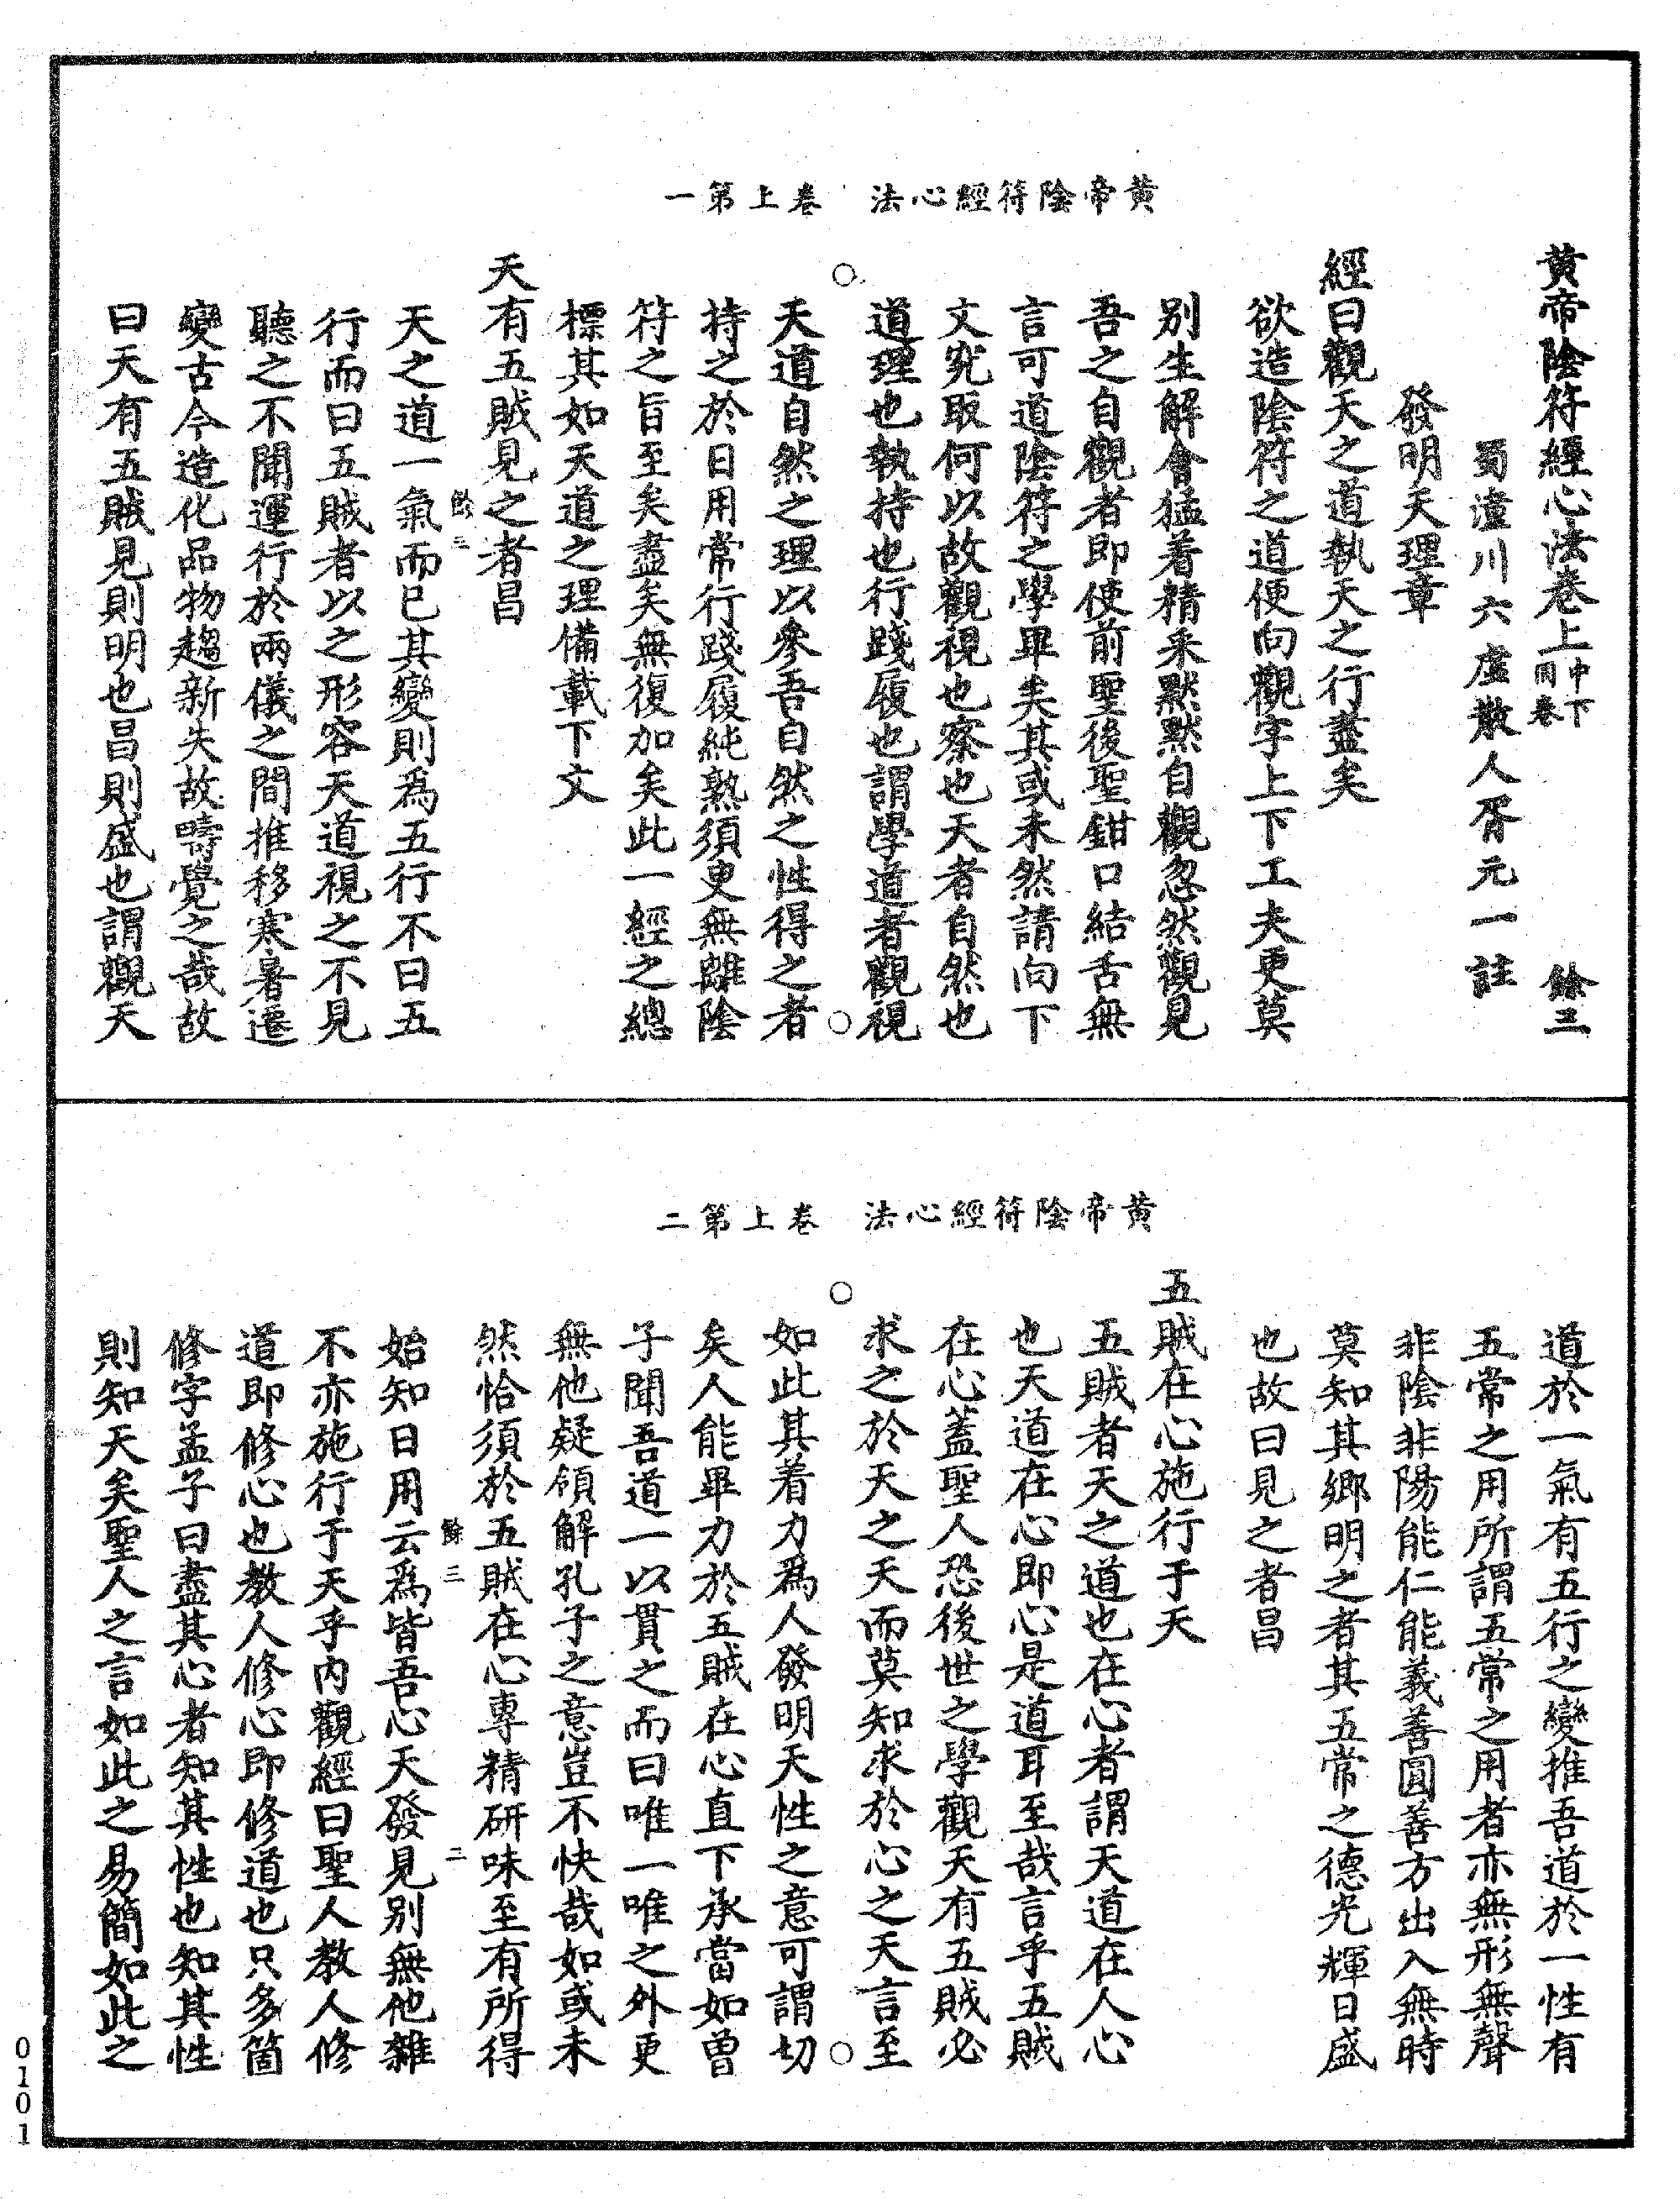 黃帝陰符經心法　卷上第一
黃帝陰符經心法卷上中下同卷　餘三
蜀潼川六虛散人胥元一註
發明天理章
經曰觀天之道執天之行盡矣
欲造陰符之道便向觀字上下工夫更莫
別生解會猛着精釆默默自觀忽然觀見
吾之自觀者即使前聖後聖鉗口結舌無
言可道陰符之學畢矣其或未然請向下
文究取何以故觀視也察也天者自然也
道理也執持也行踐履也謂學道者觀視
天道自然之理以參吾自然之性得之者
持之於日用常行踐履純熟須臾無離陰
符之旨至矣盡矣無復加矣此一經之總
標其如天道之理備載下文
天有五賊見之者昌
餘三
天之道一氣而已其變則為五行不曰五
行而曰五賊者以之形容天道視之不見
聽之不聞運行於兩儀之間推移寒暑遷
變古今造化品物趨新失故疇覺之哉故
曰天有五賊見則明也昌則盛也謂觀天
黃帝陰符經心法　卷上第二
道於一氣有五行之變推吾道於一性有
五常之用所謂五常之用者亦無形無聲
非陰非陽能仁能義善圓善方出入無時
莫知其鄉明之者其五常之德光輝日盛
也故曰見之者昌
五賊在心施行于天
五賊者天之道也在心者謂天道在人心
也天道在心即心是道耳至哉言乎五賊
在心蓋聖人恐後世之學觀天有五賊必
求之於天之天而莫知求於心之天言至
如此其着力為人發明天性之意可謂切
矣人能畢力於五賊在心直下承當如曾
子聞吾道一以貫之而曰唯一唯之外更
無他疑領解孔子之意豈不快哉如或未
然恰須於五賊在心專精研味至有所得
餘三　二
始知日用云為皆吾心天發見別無他雜
不亦施行于天乎內觀經曰聖人教人修
道即修心也教人修心即修道也只多箇
修字孟子曰盡其心者知其性也知其性
則知天矣聖人之言如此之易簡如此之
0101